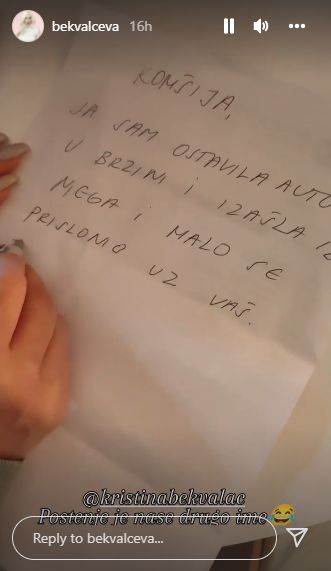 bekvalceva 16h
KOMŠIJA,
JA SAM OSTAVILA AUTO
U BRZINI I IZAŠLA IZ
NJEGA I MALO SE
PRISLONIO UZ VAŠ.
@kristinabekvalac
Postenje je nase drugo ime😂
Reply to bekvalceva...